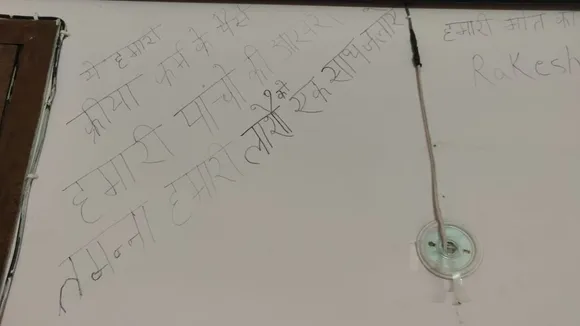 ये हमारा
क्रीया कर्म के पैसे
हमारी पांचो की आखरी
तमन्ना हमारी लाशो को एक साथ जलाऐ
हमारी मौत का
Rakesh